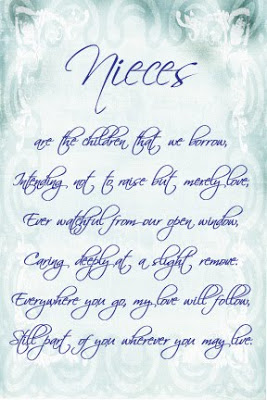 Nieces
are the children that we borrow,
Intending not to raise but merely love,
Ever watchful from our open window,
Caring deeply at a slight remove.
Everywhere you go, my love will follow,
Still part of you wherever you may live.